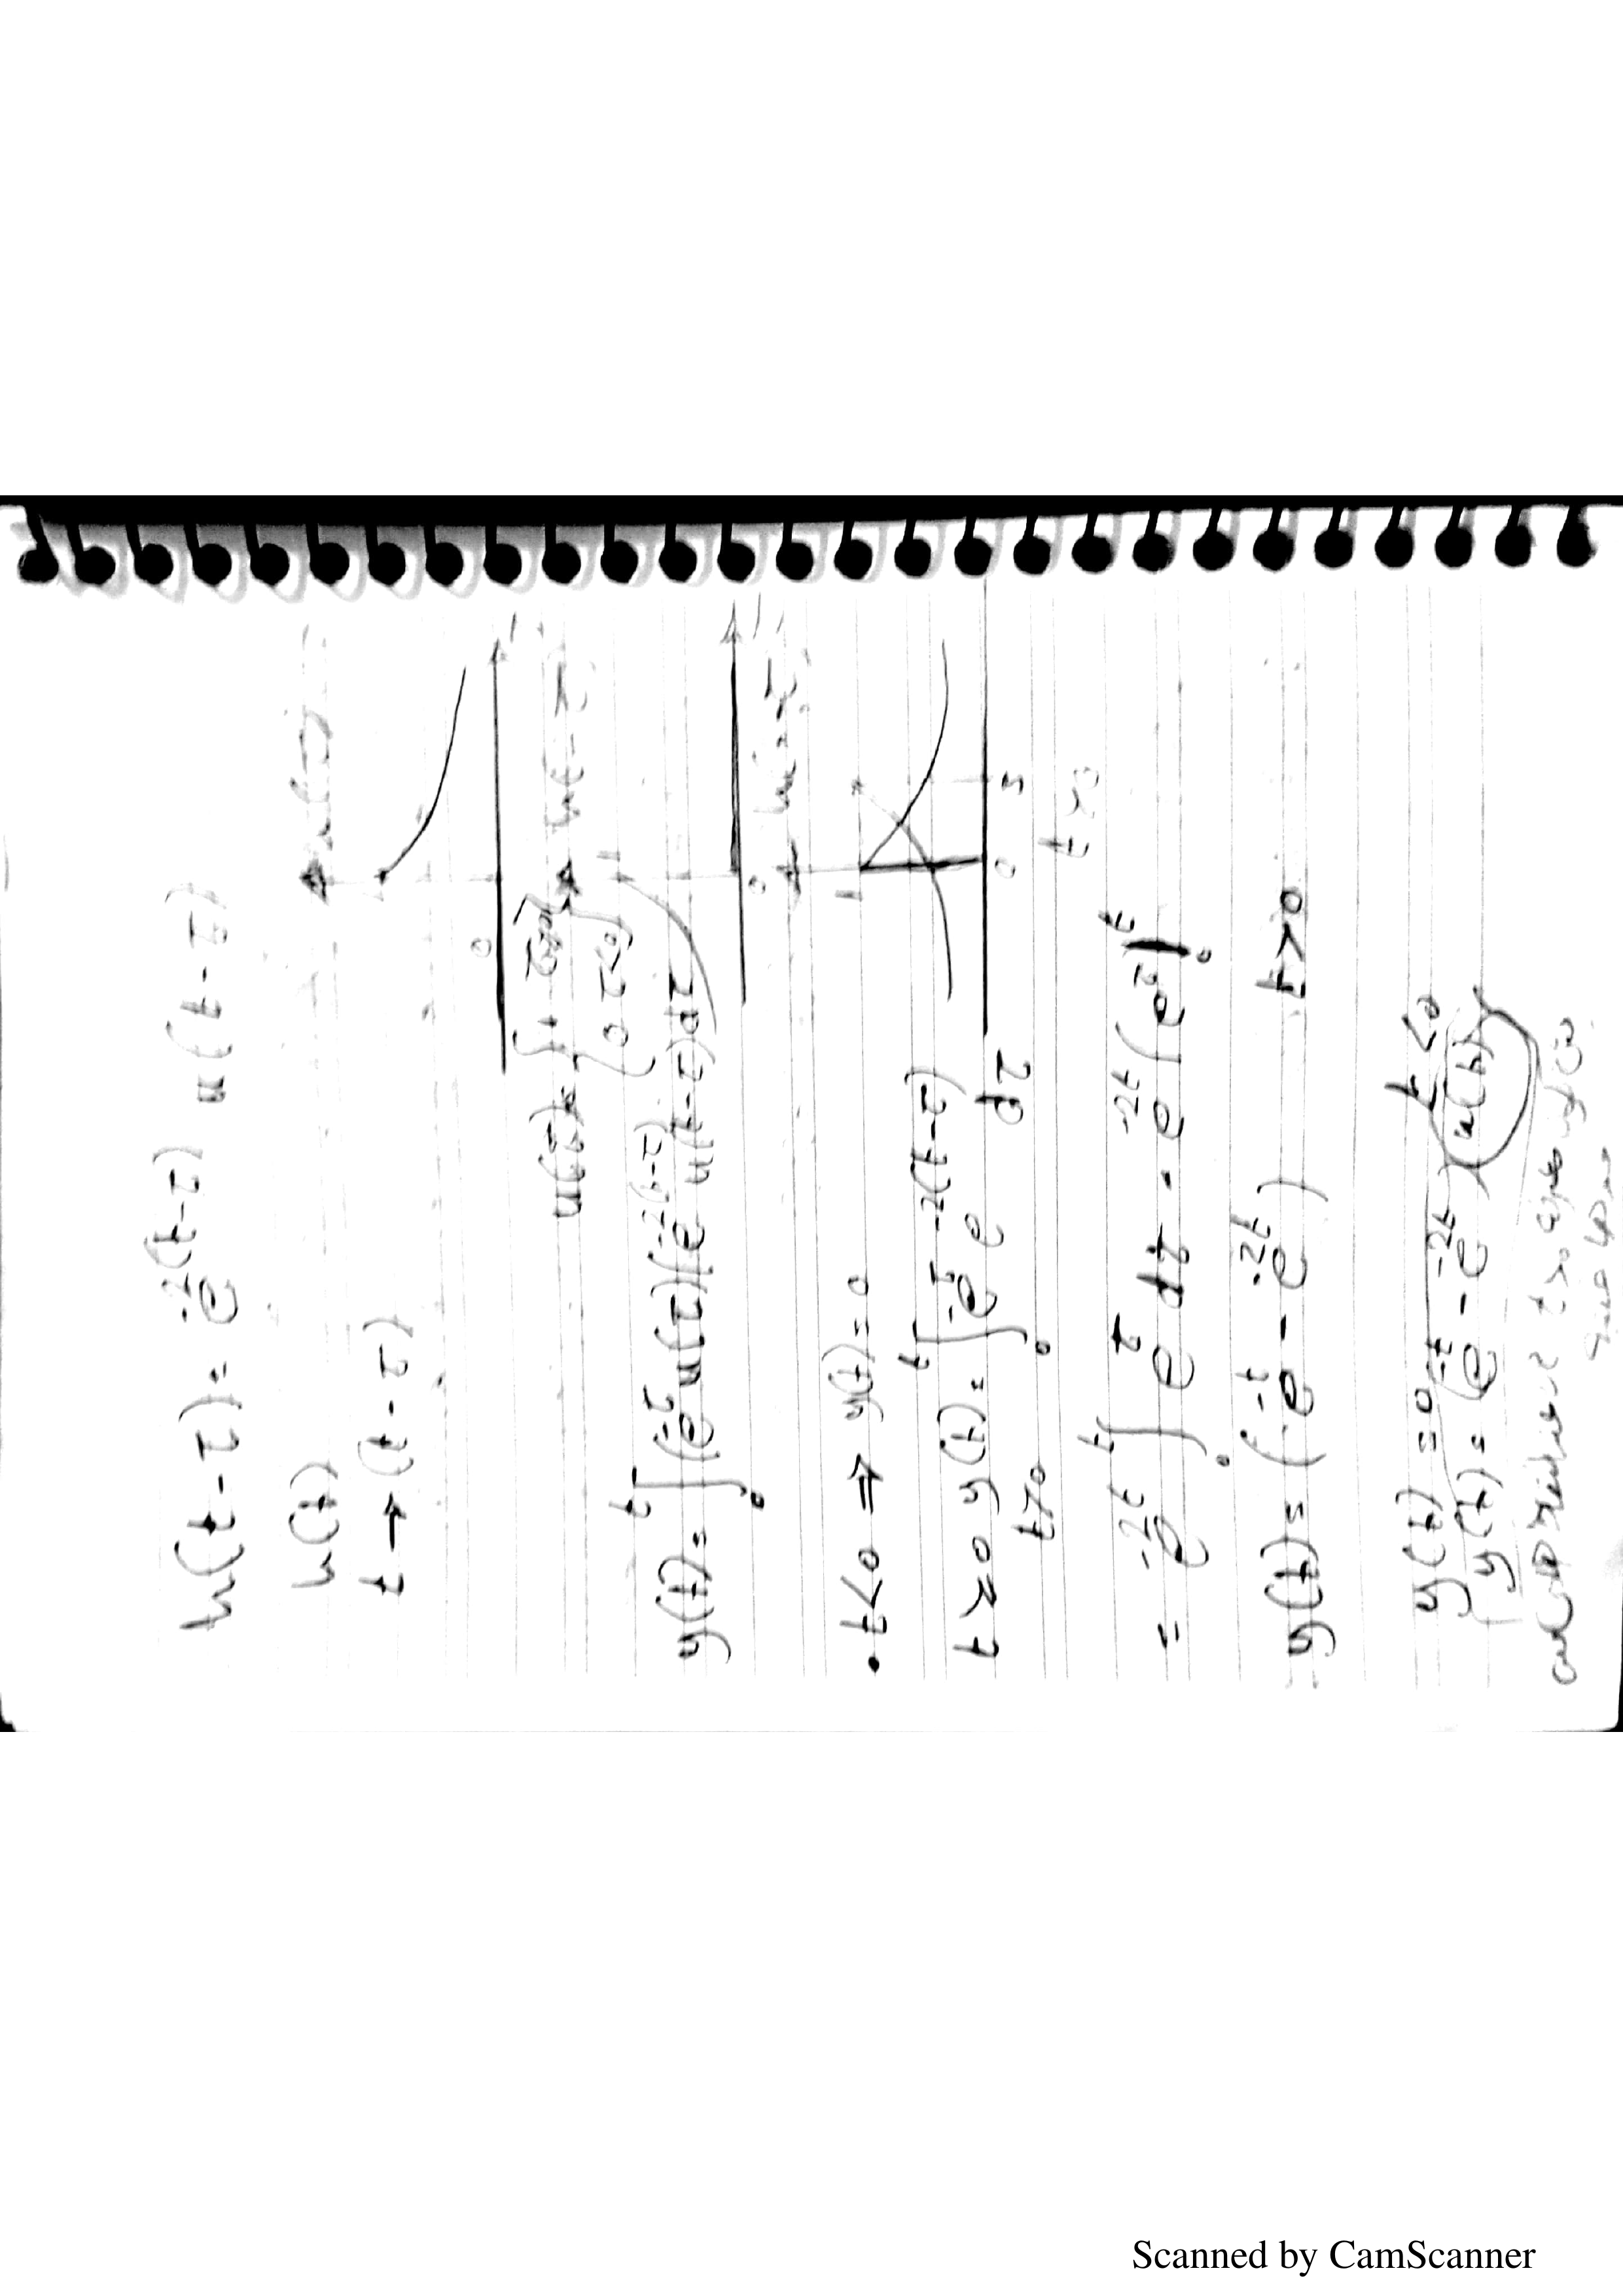 h(t-τ) = e^{-2(t-τ)} u(t-τ)
h(t)
t → (t-τ)
0
u(τ) = { 1 τ>0
{ 0 τ<0
1
0
y(t) = ∫_0^t (e^{-τ} u(τ))(e^{-2(t-τ)} u(t-τ) dτ
1
0
t>0
• t<0 ⇒ y(t) = 0
t>0 y(t) = ∫_0^t e^{-τ} e^{-2(t-τ)} dτ
t>0
= e^{-2t} ∫_0^t e^τ dτ = e^{-2t} (e^τ |_0^t
y(t) = (e^{-t} - e^{-2t}) t>0
y(t) = 0 t<0
y(t) = (e^{-t} - e^{-2t}) u(t)
t>0
Scanned by CamScanner